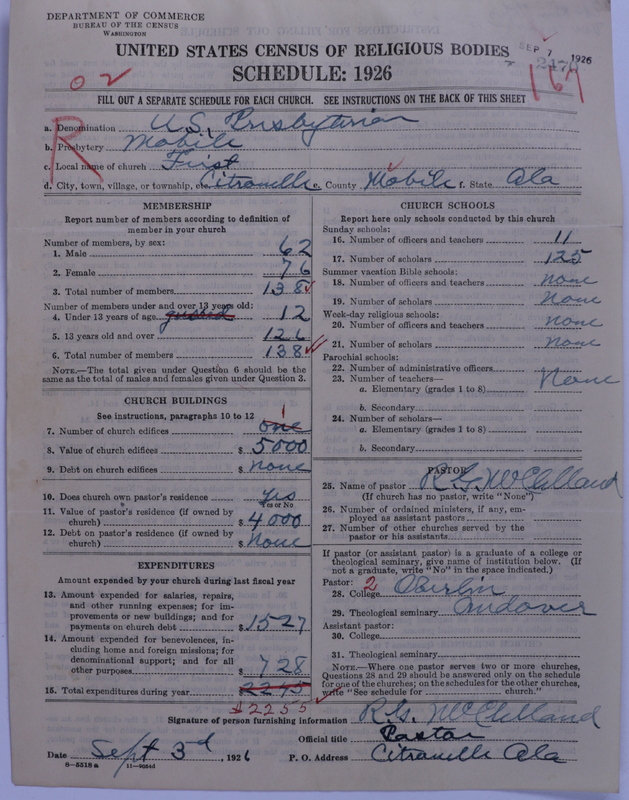 DEPARTMENT OF COMMERCE
BUREAU OF THE CENSUS
WASHINGTON
UNITED STATES CENSUS OF RELIGIOUS BODIES
SCHEDULE: 1926
SEP 7 1926
167
FILL OUT A SEPARATE SCHEDULE FOR EACH CHURCH. SEE INSTRUCTIONS ON THE BACK OF THIS SHEET
R
a. Denomination U.S. Presbyterian
b. Presbytery Mobile
c. Local name of church First
d. City, town, village, or township, etc. Citronelle e. County Mobile f. State Ala
MEMBERSHIP
Report number of members according to definition of member in your church
Number of members, by sex:
1. Male 62
2. Female 76
3. Total number of members 138
Number of members under and over 13 years old:
4. Under 13 years of age guessed 12
5. 13 years old and over 126
6. Total number of members 138
NOTE.—The total given under Question 6 should be the same as the total of males and females given under Question 3.
CHURCH BUILDINGS
See instructions, paragraphs 10 to 12
7. Number of church edifices one 1
8. Value of church edifices $ 5000
9. Debt on church edifices $ none
10. Does church own pastor's residence Yes
Yes or No
11. Value of pastor's residence (if owned by church) $ 4000
12. Debt on pastor's residence (if owned by church) $ None
EXPENDITURES
Amount expended by your church during last fiscal year
13. Amount expended for salaries, repairs, and other running expenses; for improvements or new buildings; and for payments on church debt $ 1527
14. Amount expended for benevolences, including home and foreign missions; for denominational support; and for all other purposes $ 728
15. Total expenditures during year
$2255
CHURCH SCHOOLS
Report here only schools conducted by this church
Sunday schools:
16. Number of officers and teachers 11
17. Number of scholars 125
Summer vacation Bible schools:
18. Number of officers and teachers none
19. Number of scholars None
Week-day religious schools:
20. Number of officers and teachers none
21. Number of scholars none
Parochial schools:
22. Number of administrative officers
23. Number of teachers— None
a. Elementary (grades 1 to 8)
b. Secondary
24. Number of scholars—
a. Elementary (grades 1 to 8)
b. Secondary
PASTOR
25. Name of pastor R.G. McClelland
(If church has no pastor, write "None")
26. Number of ordained ministers, if any, employed as assistant pastors
27. Number of other churches served by the pastor or his assistants
If pastor (or assistant pastor) is a graduate of a college or theological seminary, give name of institution below. (If not a graduate, write "No" in the space indicated.)
Pastor: 2
28. College Oberlin
29. Theological seminary Andover
Assistant pastor:
30. College
31. Theological seminary
NOTE.—Where one pastor serves two or more churches, Questions 28 and 29 should be answered only on the schedule for one of the churches; on the schedules for the other churches, write "See schedule for church."
Signature of person furnishing information R.G. McClelland
Official title Pastor
Date Sept 3rd, 1926 P. O. Address Citronelle Ala
8-5518 a